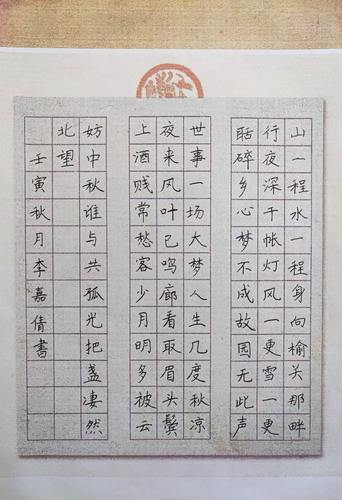 山一程水一程身向榆关那畔
行夜深千帐灯风一更雪一更
聒碎乡心梦不成故园无此声
世事一场大梦人生几度秋凉
夜来风叶已鸣廊看取眉头鬓
上酒贱常愁客少月明多被云
妨中秋谁与共孤光把盏凄然
北望
壬寅秋月李嘉倩書